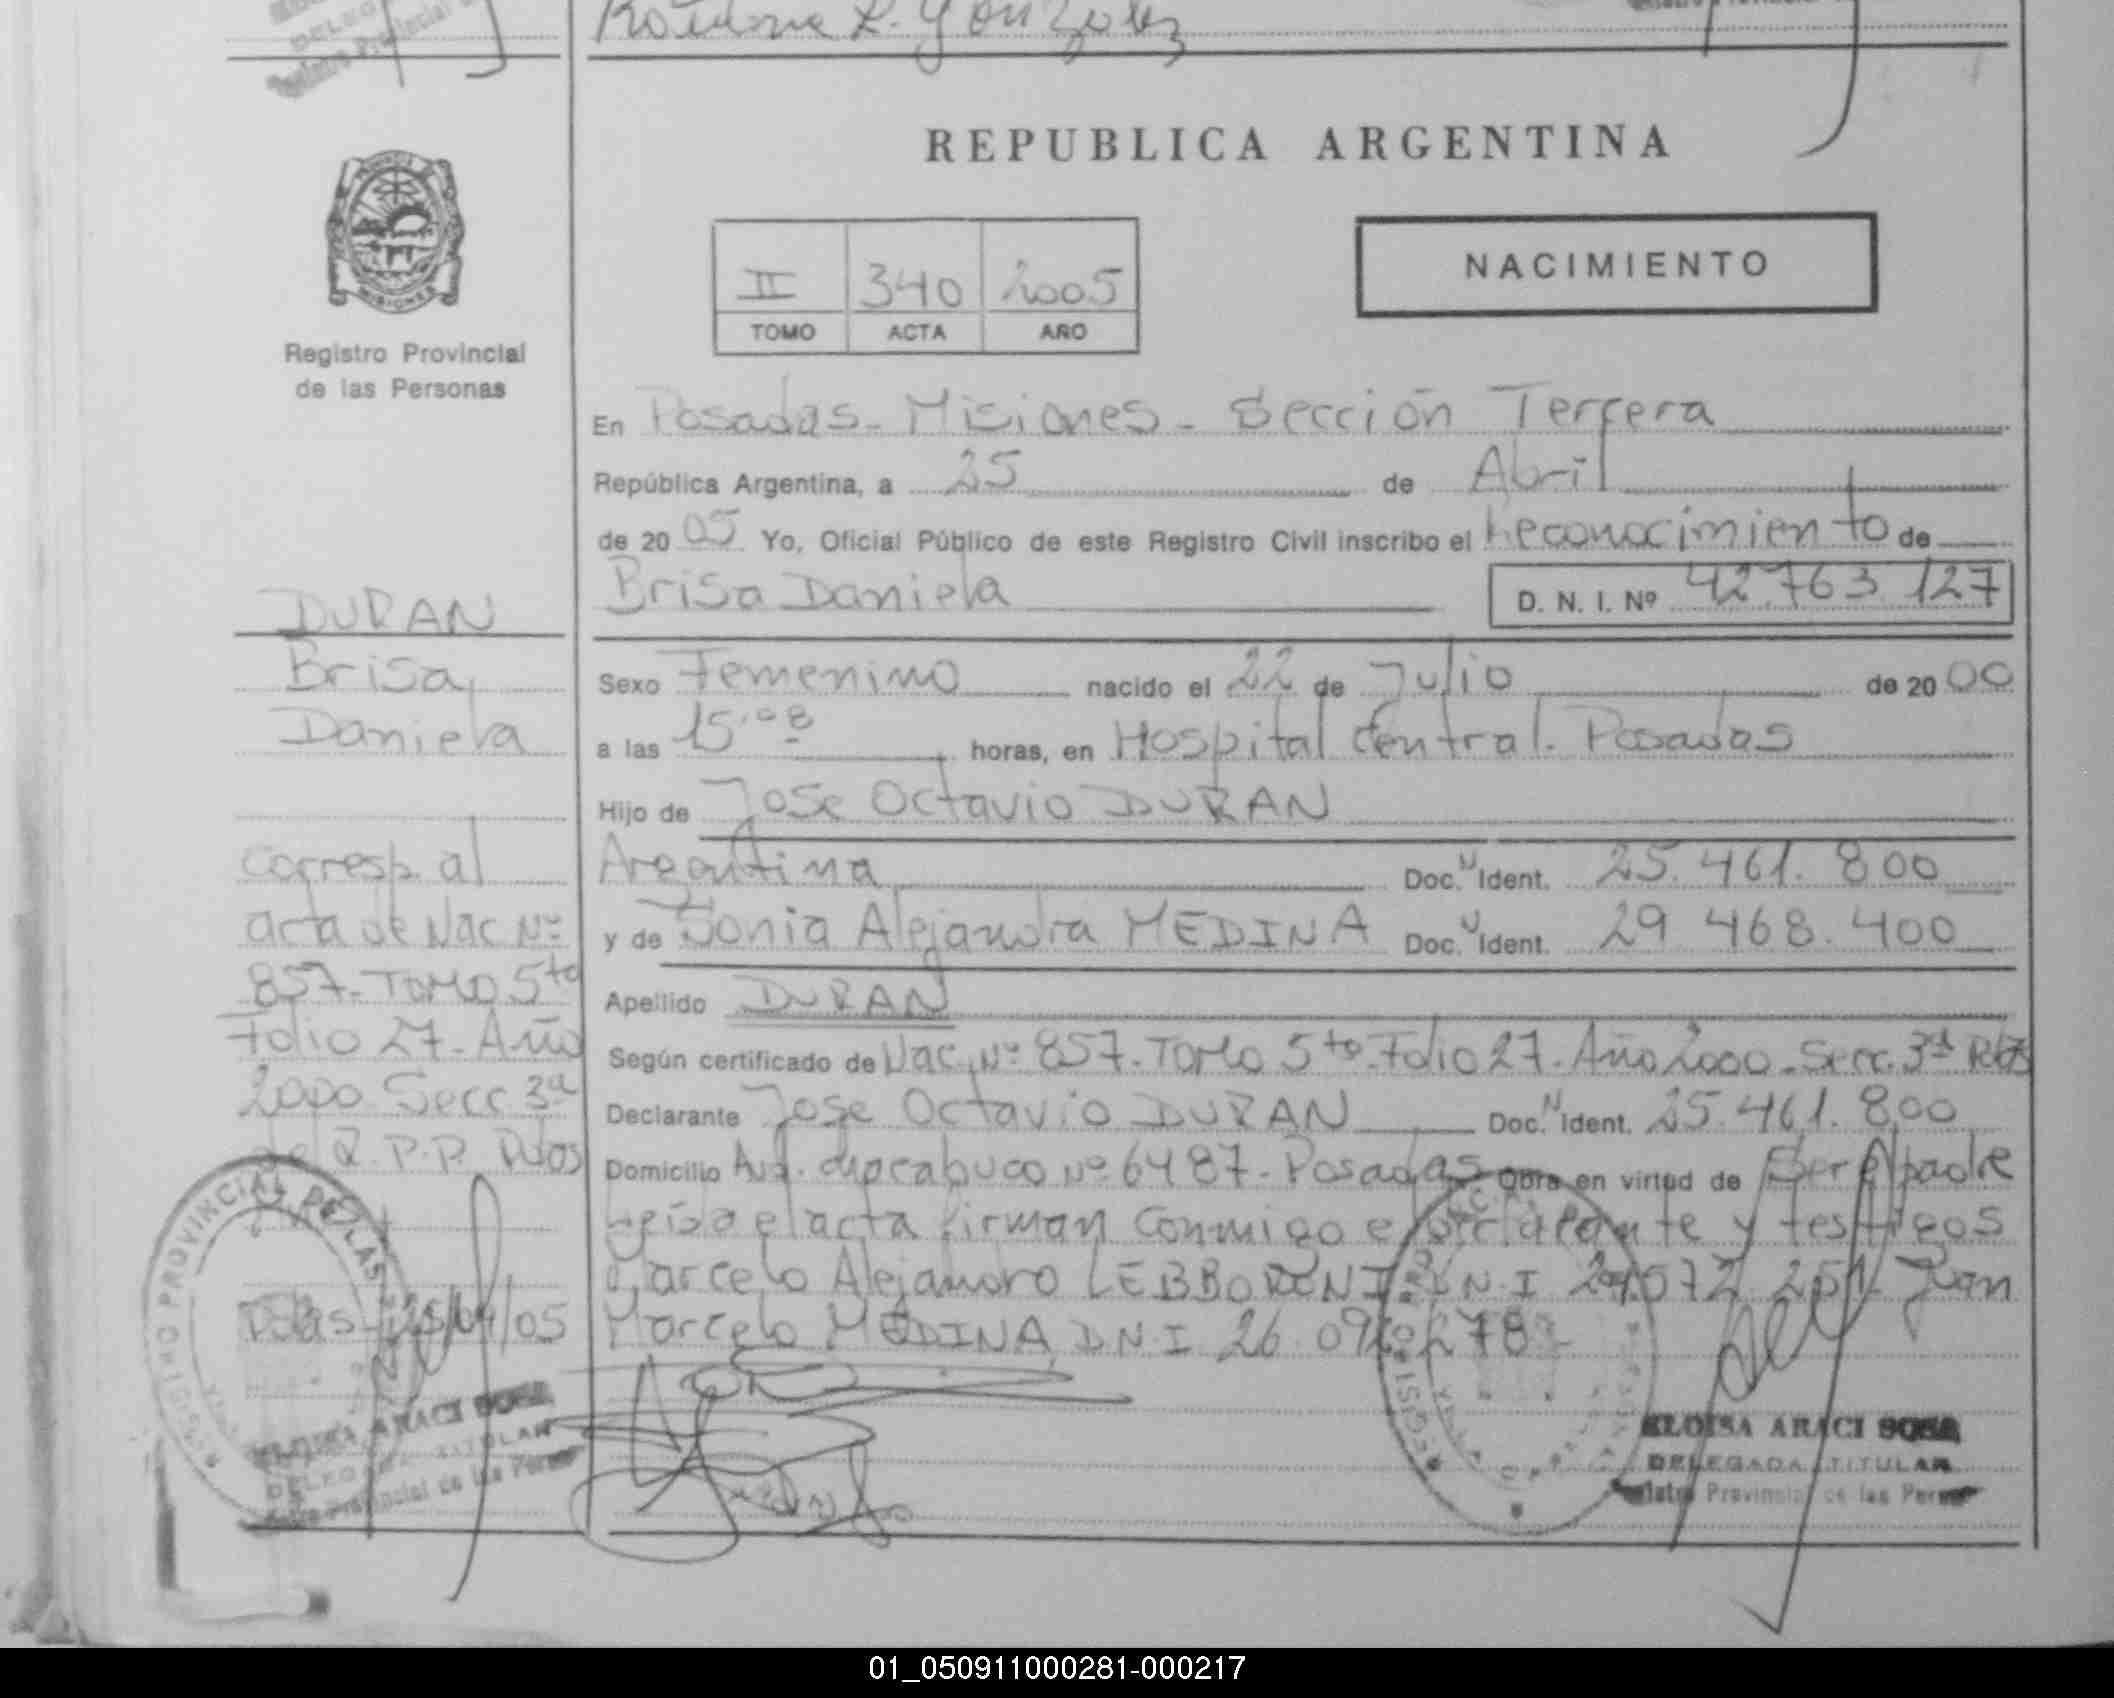 Romina R. Gonzalez
REPUBLICA ARGENTINA
NACIMIENTO
II 340 2005
TOMO ACTA AÑO
MISIONES
Registro Provincial
de las Personas
En Posadas - Misiones - Sección Tercera
República Argentina, a 25 de Abril
de 20 05 Yo, Oficial Público de este Registro Civil inscribo el Reconocimiento de
Brisa Daniela D. N. I. Nº 42.763.127
Sexo Femenino nacido el 22 de Julio de 20 00
a las 15.08 horas, en Hospital Central. Posadas
Hijo de Jose Octavio DURAN
Argentina Doc. N Ident. 25.461.800
y de Sonia Alejandra MEDINA Doc. N Ident. 29 468.400
Apellido DURAN
Según certificado de Nac. Nº 857. Tomo 5to. Folio 27. Año 2000. Secc. 3ª Pdas
Declarante Jose Octavio DURAN Doc. N Ident. 25.461.800
Domicilio Avd. Chacabuco Nº 6487 - Posadas Obra en virtud de Ser el padre
Leída el acta firman conmigo el declarante y testigos
Marcelo Alejandro DNI Juan
Marcelo MEDINA DNI 26
DURAN
Brisa
Daniela
Corresp. al
acta de Nac Nº
857. Tomo 5to
Folio 27. Año
2000 Secc 3ª
del R.P.P. Pdas
Pdas 25/04/05
REGISTRO PROVINCIAL DE LAS
ELOISA ARACI SOSA
DELEGADA TITULAR
Registro Provincial de las Personas
ELOISA ARACI SOSA
DELEGADA TITULAR
Provincial de las
01_050911000281-000217